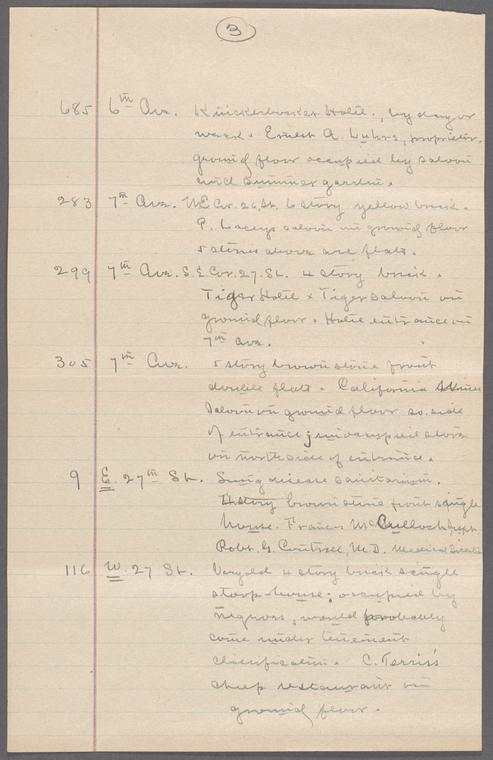 3
685 6th Ave. Knickerbocker Hotel, by day or
week. Ernest A. Luhrs, proprietor.
ground floor occupied by saloon
and summer garden.
283 7th Ave. N.E. Cor. 26. St. 6 story yellow brick.
P. Laceys saloon on ground floor
5 stories above are flats.
299 7th Ave. S.E. Cor. 27. St. 4 story brick.
Tiger Hotel & Tiger saloon on
ground floor. Hotel entrance on
7th Ave.
305 7th Ave. 5 story brown stone front
double flats. California
Saloon on ground floor so. side
of entrance; unoccupied store
on north side of entrance.
9 E. 27th St. Lung disease sanitarium.
4 story brown stone front single
house. Francis McCulloch Supt.
Robt. G. M.D. Medical
116 W. 27 St. Very old 4 story brick single
stoop-house; occupied by
negroes, would probably
come under tenement
classification. C. Ferris's
cheap restaurant on
ground floor.